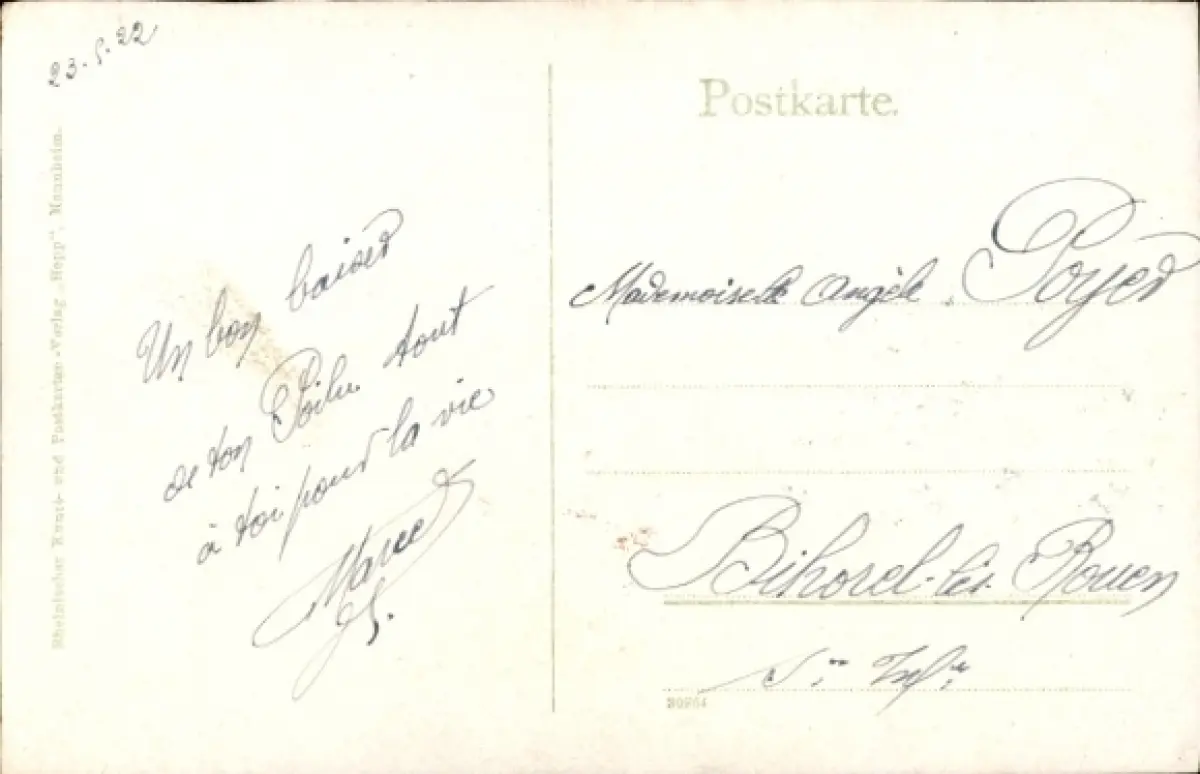 23-5-22
Rheinischer Kunst- und Postkarten-Verlag „Hepp“, Mannheim.
Un bon baiser
de ton Poilu tout
à toi pour la vie
Marcel
Postkarte.
Mademoiselle Angèle Poyer
Bihorel-les-Rouen
S:re Infre